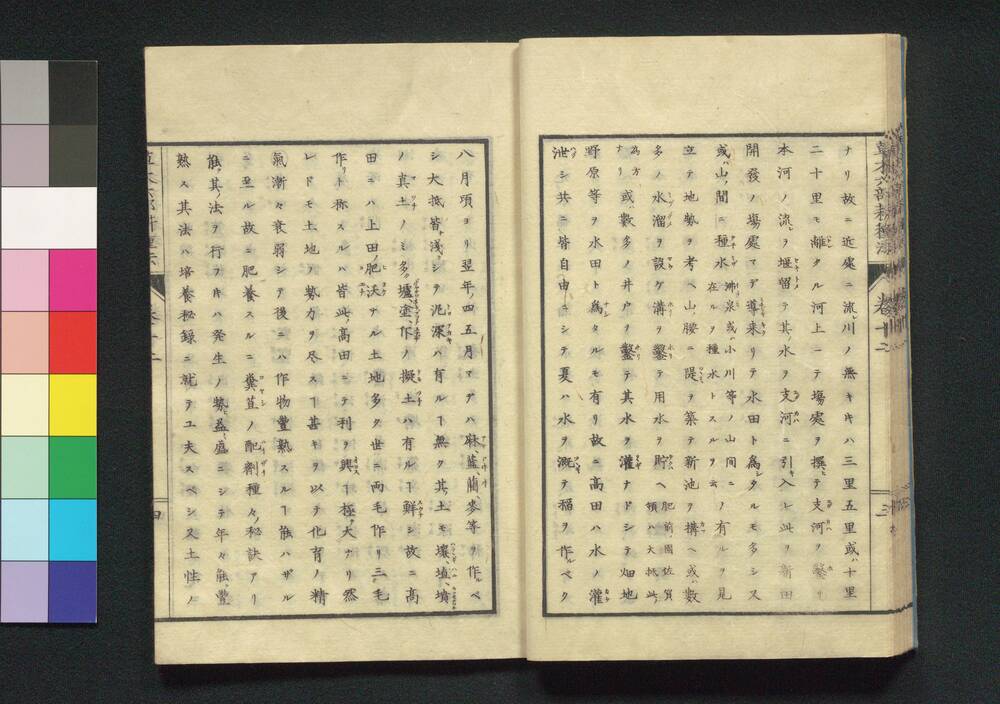 ナリ故ニ近處ニ流川ノ無キキハ三里五里或ハ十里
二十里モ離タル河上ニテ塲處ヲ撰テ支河ヲ鑿リ
本河ノ流ヲ堰留テ其水ヲ支河ニ引入レ此ヲ新田
開發ノ塲處マデ導来リテ水田ト為シタルモ多シス
或山ノ間ニ種水沸泉或小川等ノ山間ニ在ルヲ種水トスルヲ云ノ有ルヲ見
立テ地勢ヲ考ヘ山腰ニ隄ヲ築テ新池ヲ搆ヘ或ハ數
多ノ水溜ヲ設ケ溝ヲ鑿テ用水ヲ貯ヘ肥前國佐賀領ハ大抵此
為方ナリ或數多ノ井戸ヲ鑿テ其水ヲ灌ナドシテ畑地
野原等ヲ水田ト為タルモ有リ故ニ高田ハ水ノ灌
泄シ共ニ皆自由ニシテ夏ハ水ヲ溉テ稲ヲ作ルベク
草木六部耕種法 巻十二 三
八月頃ヨリ翌年ノ四五月マデハ麻藍藺麥等ヲ作ルベ
シ大抵皆浅シテ泥深ハ有ルヿ無ク其土モ壤埴墳
ノ真土ノミ多ク壚塗下ノ擬土ハ有ルヿ鮮シ故ニ高
田ニハ上田ノ肥沃ナル土地多ク世ニ両毛作リ三毛
作リト称スルハ皆此高田ニテ利ヲ興ヿ極大ナリ然
レドモ土地ノ勢力ヲ尽スヿ甚キヲ以テ化育ノ精
氣漸々衰弱シテ後ニハ作物豐熟スルヿ能ハザル
ニ至ル故ニ肥養スルニ糞苴ノ配劑種々ノ秘訣アリ
能其ノ法ヲ行フキハ発生ノ勢益盛ニシテ年々能豐
熟ス其法ハ培養秘録ニ就テ工夫スベシス土性ノ
四